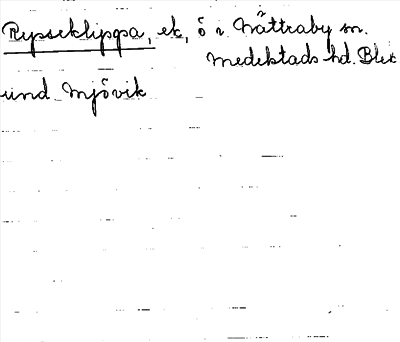 Rypseklippa, ek, ö i Nättraby sn.
Medelstads hd. Blek
und Mjövik